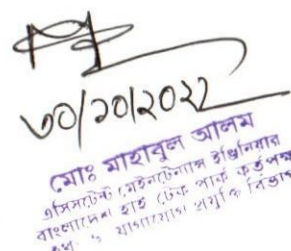 ৩০/১০/২০২২
মোঃ মাহাবুল আলম
এসিসটেন্ট মেইনটেন্যান্স ইঞ্জিনিয়ার
বাংলাদেশ হাই টেক পার্ক কর্তৃপক্ষ
ও যোগাযোগ প্রযুক্তি বিভাগ